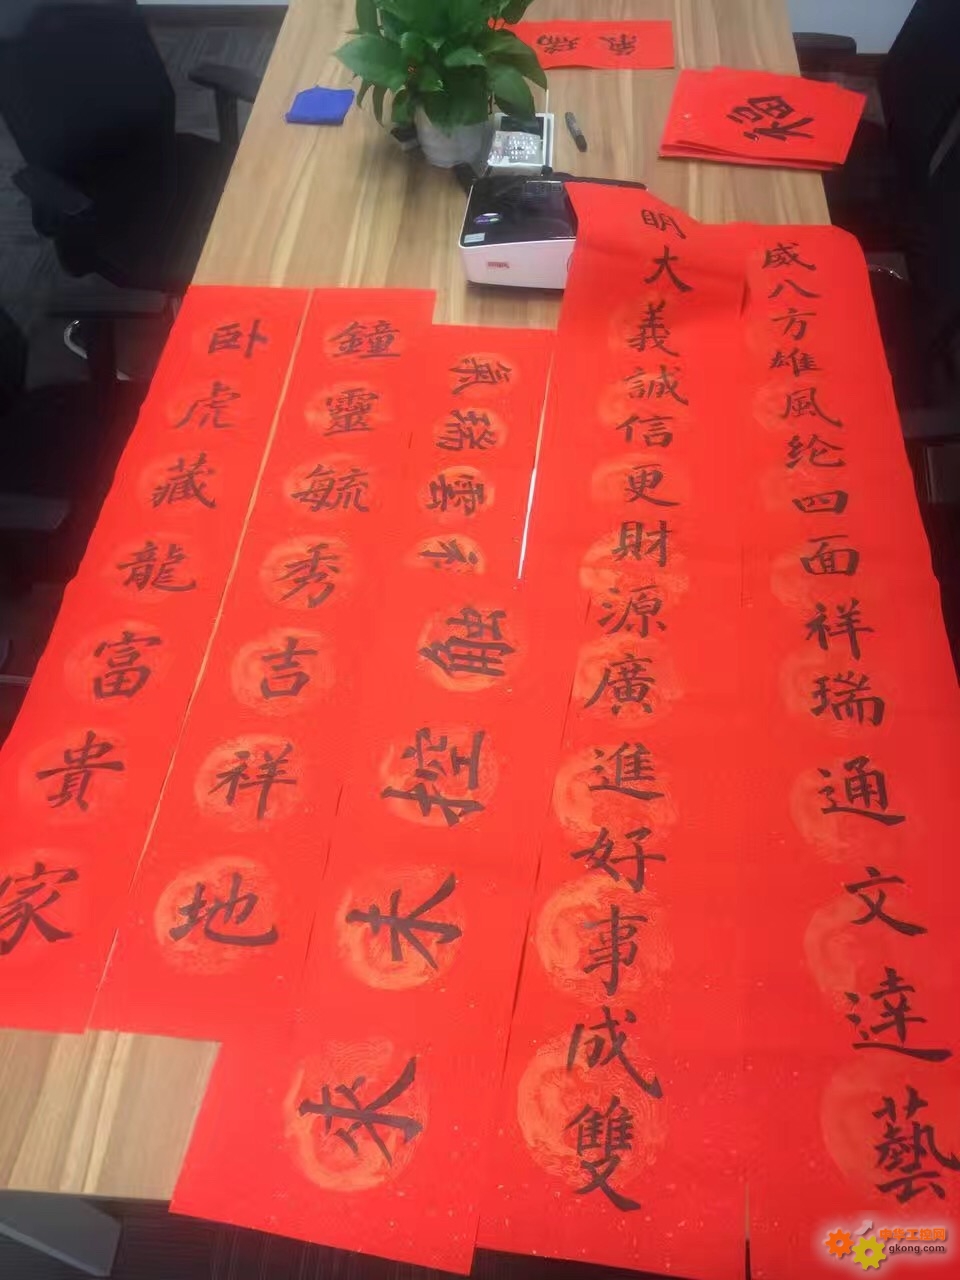 氣瑞
福
威八方雄風纶四面祥瑞通文達藝
明大義誠信更財源廣進好事成雙
氣瑞雲
控未來
鐘靈毓秀吉祥地
卧虎藏龍富貴家
中华工控网
gkong.com